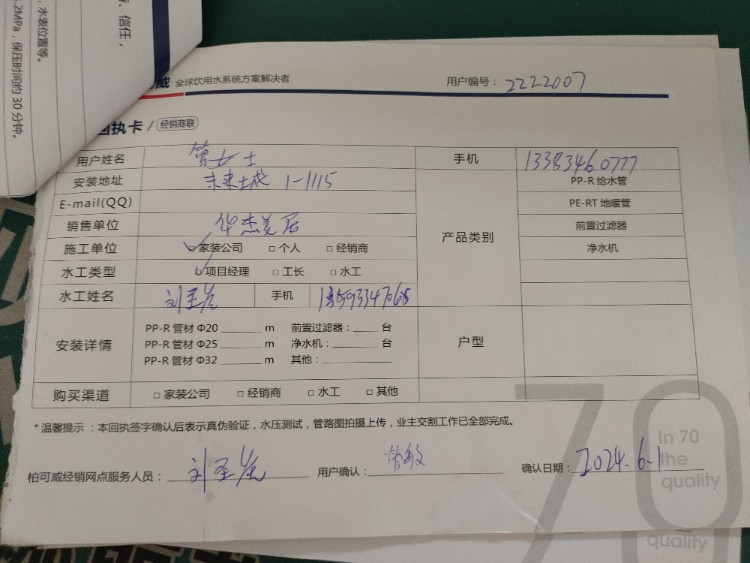 任，
水表位置等。
.2MPa，保压时间约 30 分钟。
威 全球饮用水系统方案解决者
用户编号： 2222007
回执卡 / 经销商联
用户姓名 管女士 手机 13383460777
安装地址 未来城 1-1115
E-mail(QQ)
销售单位 华杰美居
产品类别
PP-R 给水管
PE-RT 地暖管
前置过滤器
净水机
施工单位 ☑家装公司 □ 个人 □ 经销商
水工类型 ☑项目经理 □ 工长 □ 水工
水工姓名 手机
安装详情
PP-R 管材 Φ20 ______ m 前置过滤器：____ 台
PP-R 管材 Φ25 ______ m 净水机：____ 台
PP-R 管材 Φ32 ______ m 其他：____
户型
购买渠道 □ 家装公司 □ 经销商 □ 水工 □ 其他
* 温馨提示 ：本回执签字确认后表示真伪验证，水压测试，管路图拍摄上传，业主交割工作已全部完成。
柏可威经销网点服务人员：
用户确认： 管敏
确认日期： 2024.6.1
70
In 70
the
quality
quality